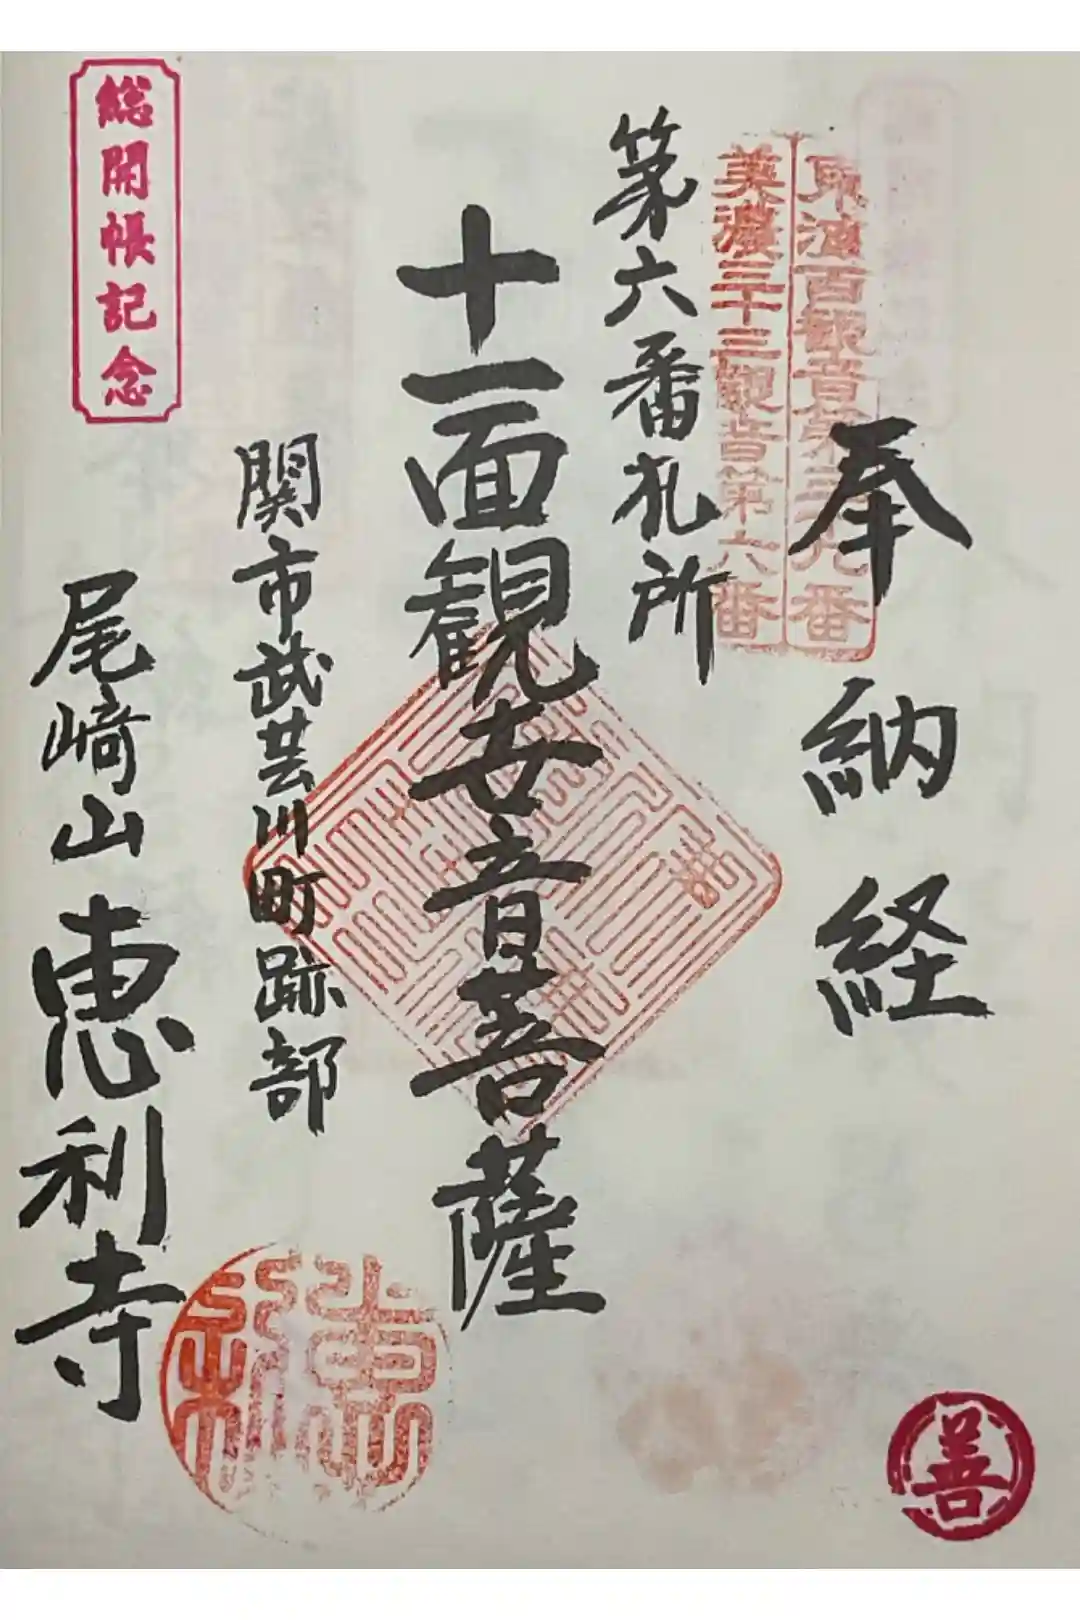 東海百観音第三十九番
美濃三十三観音第六番
奉納経
第六番札所
十一面観世音菩薩
関市武芸川町跡部
尾﨑山恵利寺
総開帳記念
善